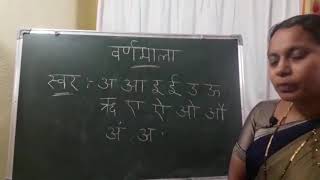 वर्णमाला
स्वर :- अ आ इ ई उ ऊ
ऋ ए ऐ ओ औ
अं अः